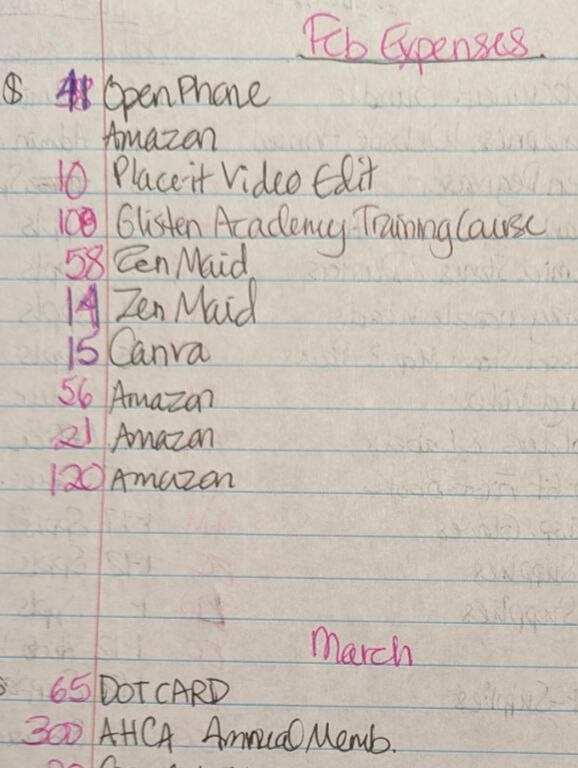 Feb Expenses
$ OpenPhone
Amazon
10 Place-it Video Edit
Glisten Academy Training Course
58 Zen Maid
14 Zen Maid
15 Canva
56 Amazon
21 Amazon
120 Amazon
March
65 DOTCARD
300 AHCA Annual Memb.